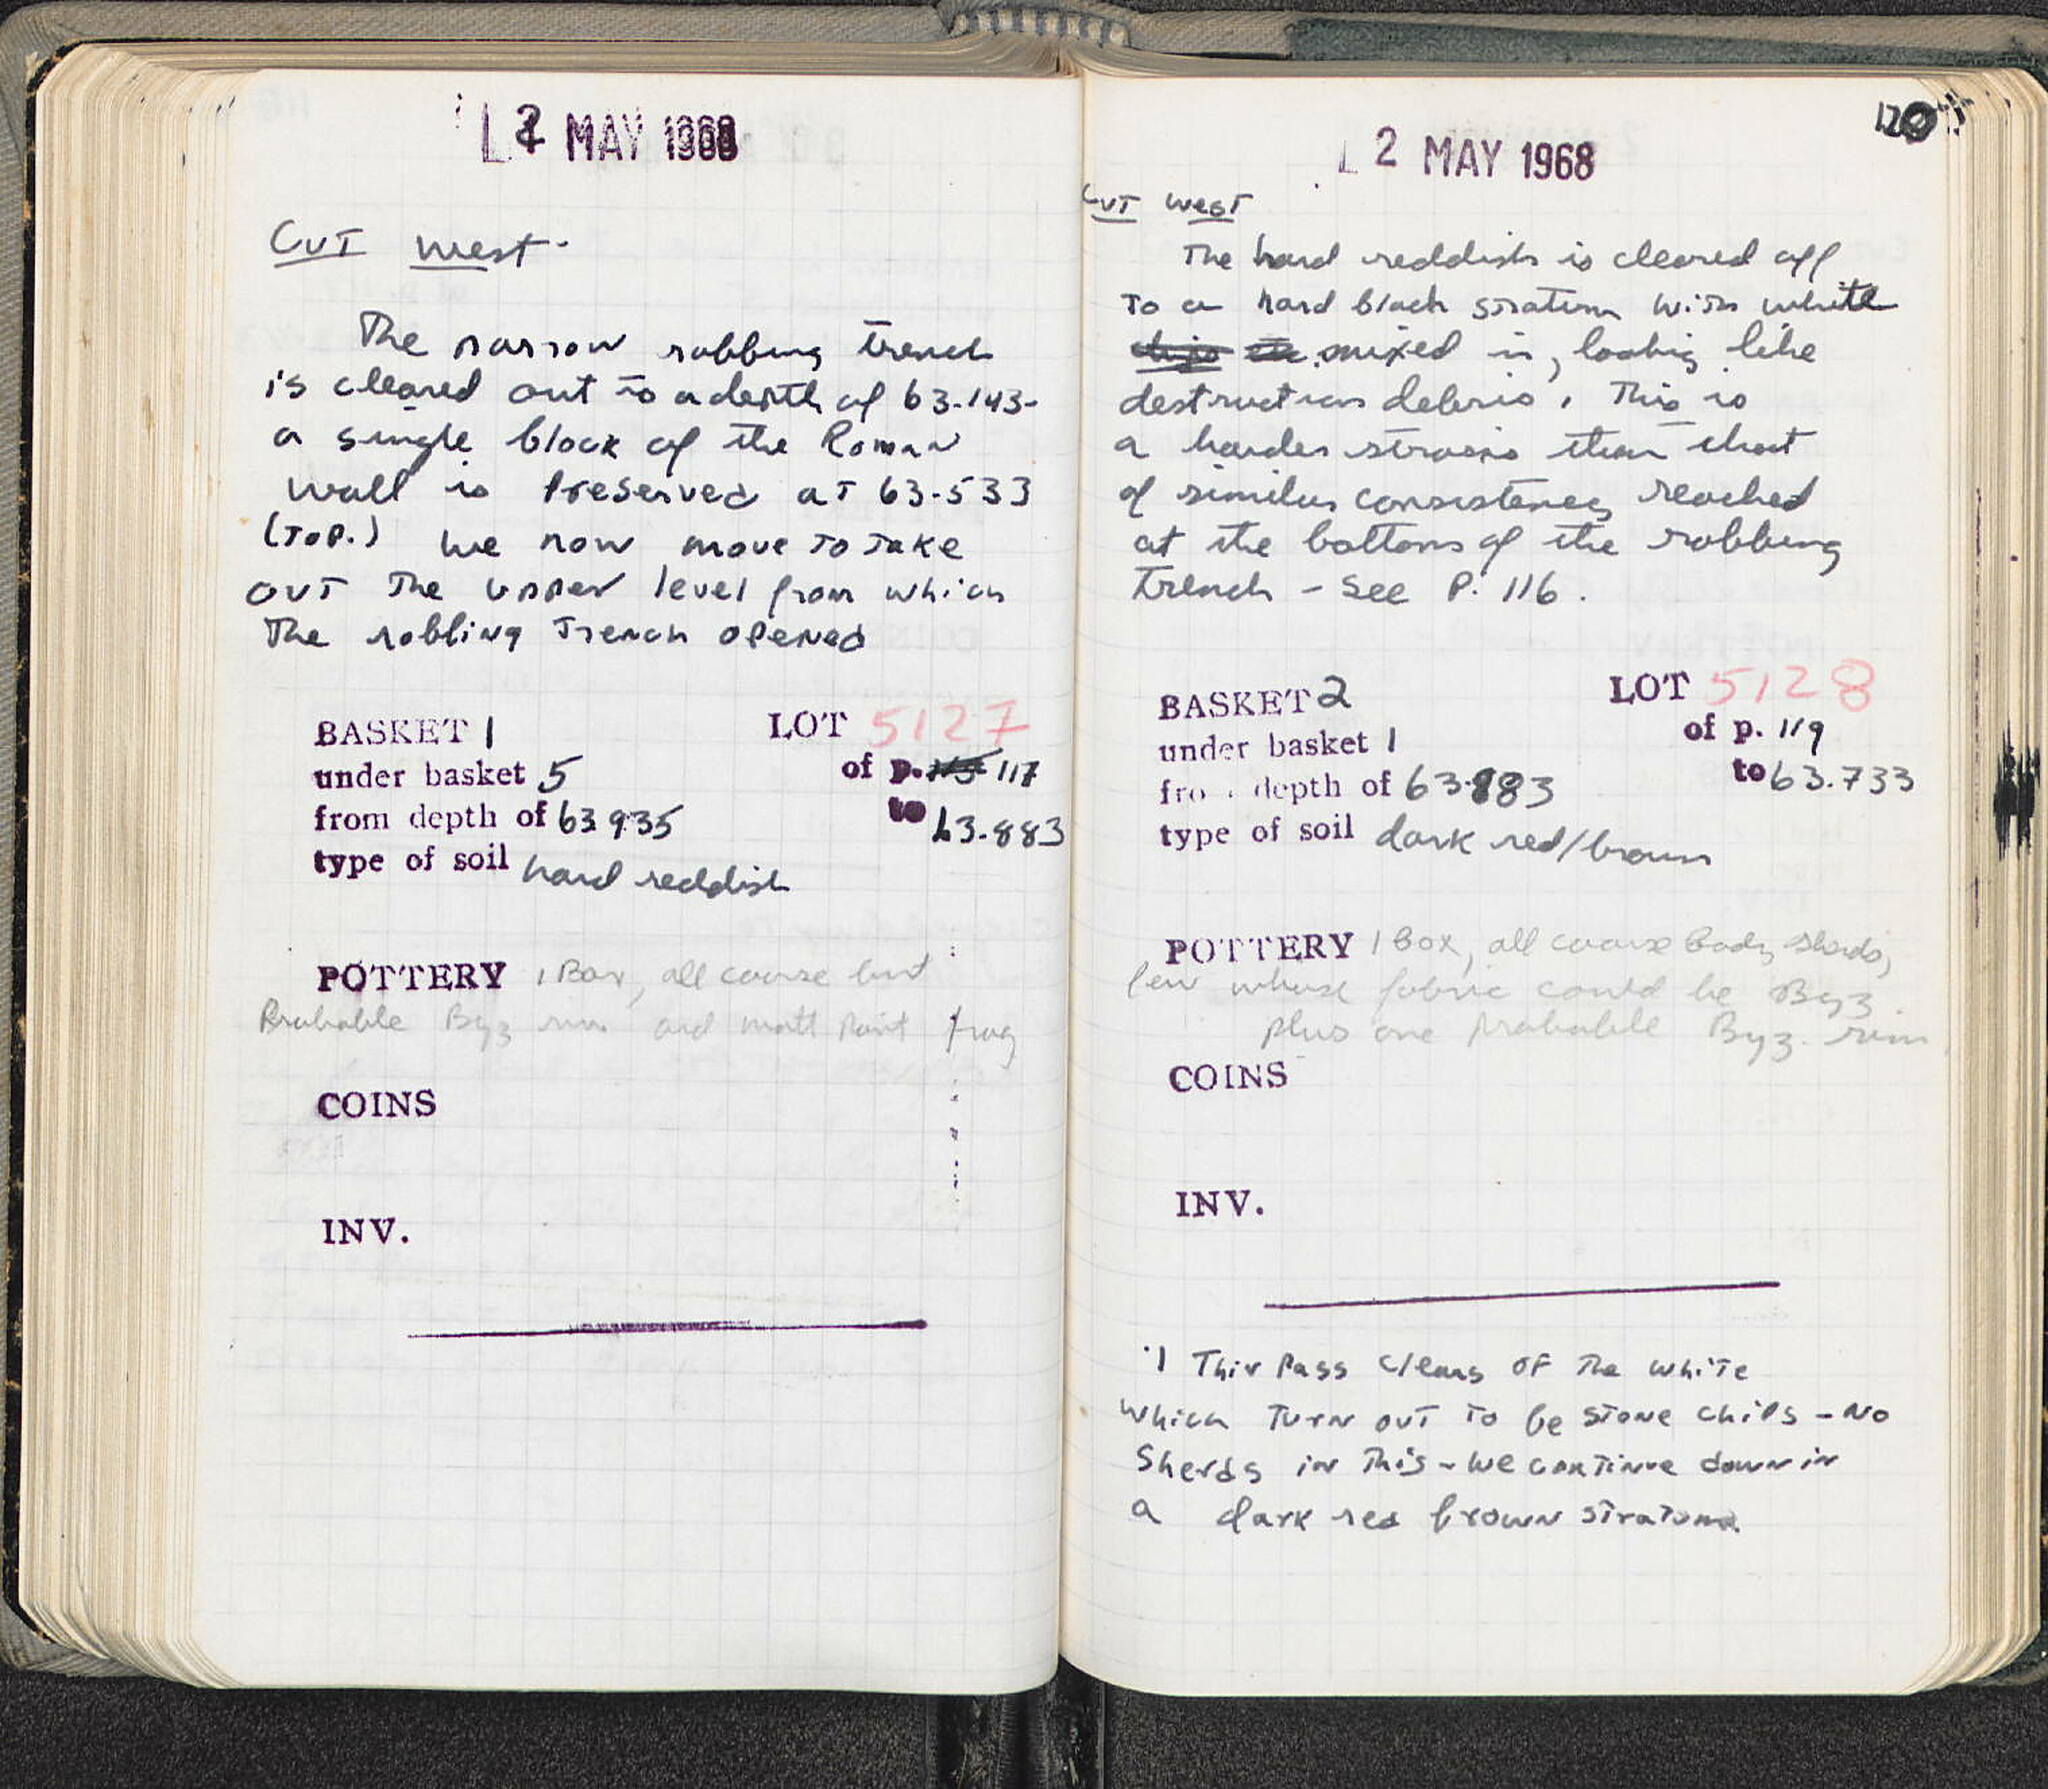 2 MAY 1968
Cut west.
The narrow robbing trench
is cleared out to a depth of 63.143-
a single block of the Roman
wall is preserved at 63.533
(top.) we now move to take
out the upper level from which
the robbing trench opened
BASKET 1 LOT 5127
under basket 5 of p. 117
from depth of 63.935 to 63.883
type of soil hard reddish
POTTERY 1 Box, all coarse but
Probable Byz rim and matt paint frag
COINS
INV.
120
2 MAY 1968
Cut west
The hard reddish is cleared off
to a hard black stratum with white
mixed in, looking like
destruction debris. This is
a harder strosis than that
of similar consistency reached
at the bottom of the robbing
trench - see P. 116.
BASKET 2 LOT 5128
under basket 1 of p. 119
from depth of 63.883 to 63.733
type of soil dark red/brown
POTTERY 1 Box, all coarse body sherds,
few whose fabric could be Byz.
plus one probable Byz. rim.
COINS
INV.
.1 This pass clears of the white
which turn out to be stone chips - no
sherds in this - we continue down in
a dark red brown stratum.